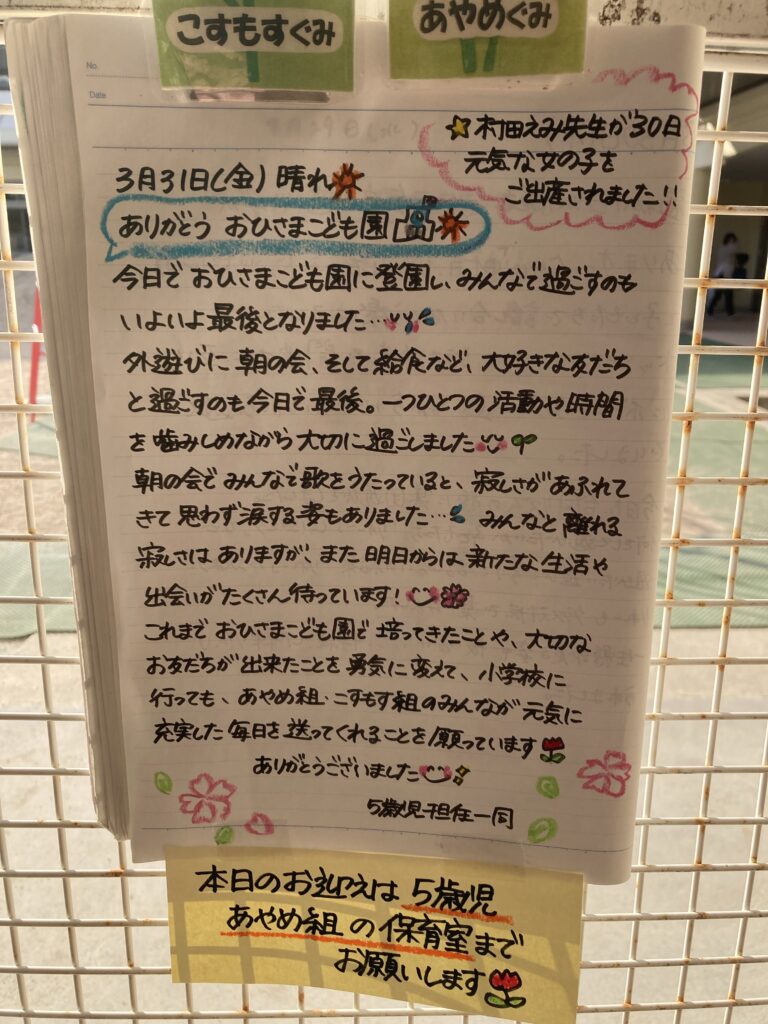 こすもすぐみ
あやめぐみ
No.
Date
☆村田えみ先生が30日
元気な女の子を
ご出産されました!!
3月31日(金) 晴れ
ありがとう おひさまこども園
今日で おひさまこども園に登園し、みんなで過ごすのも
いよいよ最後となりました…
外遊びに 朝の会、そして給食など、大好きな友だち
と過ごすのも今日で最後。一つひとつの活動や時間
を噛みしめながら大切に過ごしました
朝の会でみんなで歌をうたっていると、寂しさがあふれて
きて 思わず涙する姿もありました… みんなと離れる
寂しさは ありますが、また明日からは新たな生活や
出会いがたくさん待っています!
これまで おひさまこども園で 培ってきたことや、大切な
お友だちが出来たことを勇気に変えて、小学校に
行っても、あやめ組・こすもす組のみんなが元気に
充実した毎日を送ってくれることを願っています
ありがとうございました
5歳児担任一同
本日のお迎えは 5歳児
あやめ組の保育室まで
お願いします